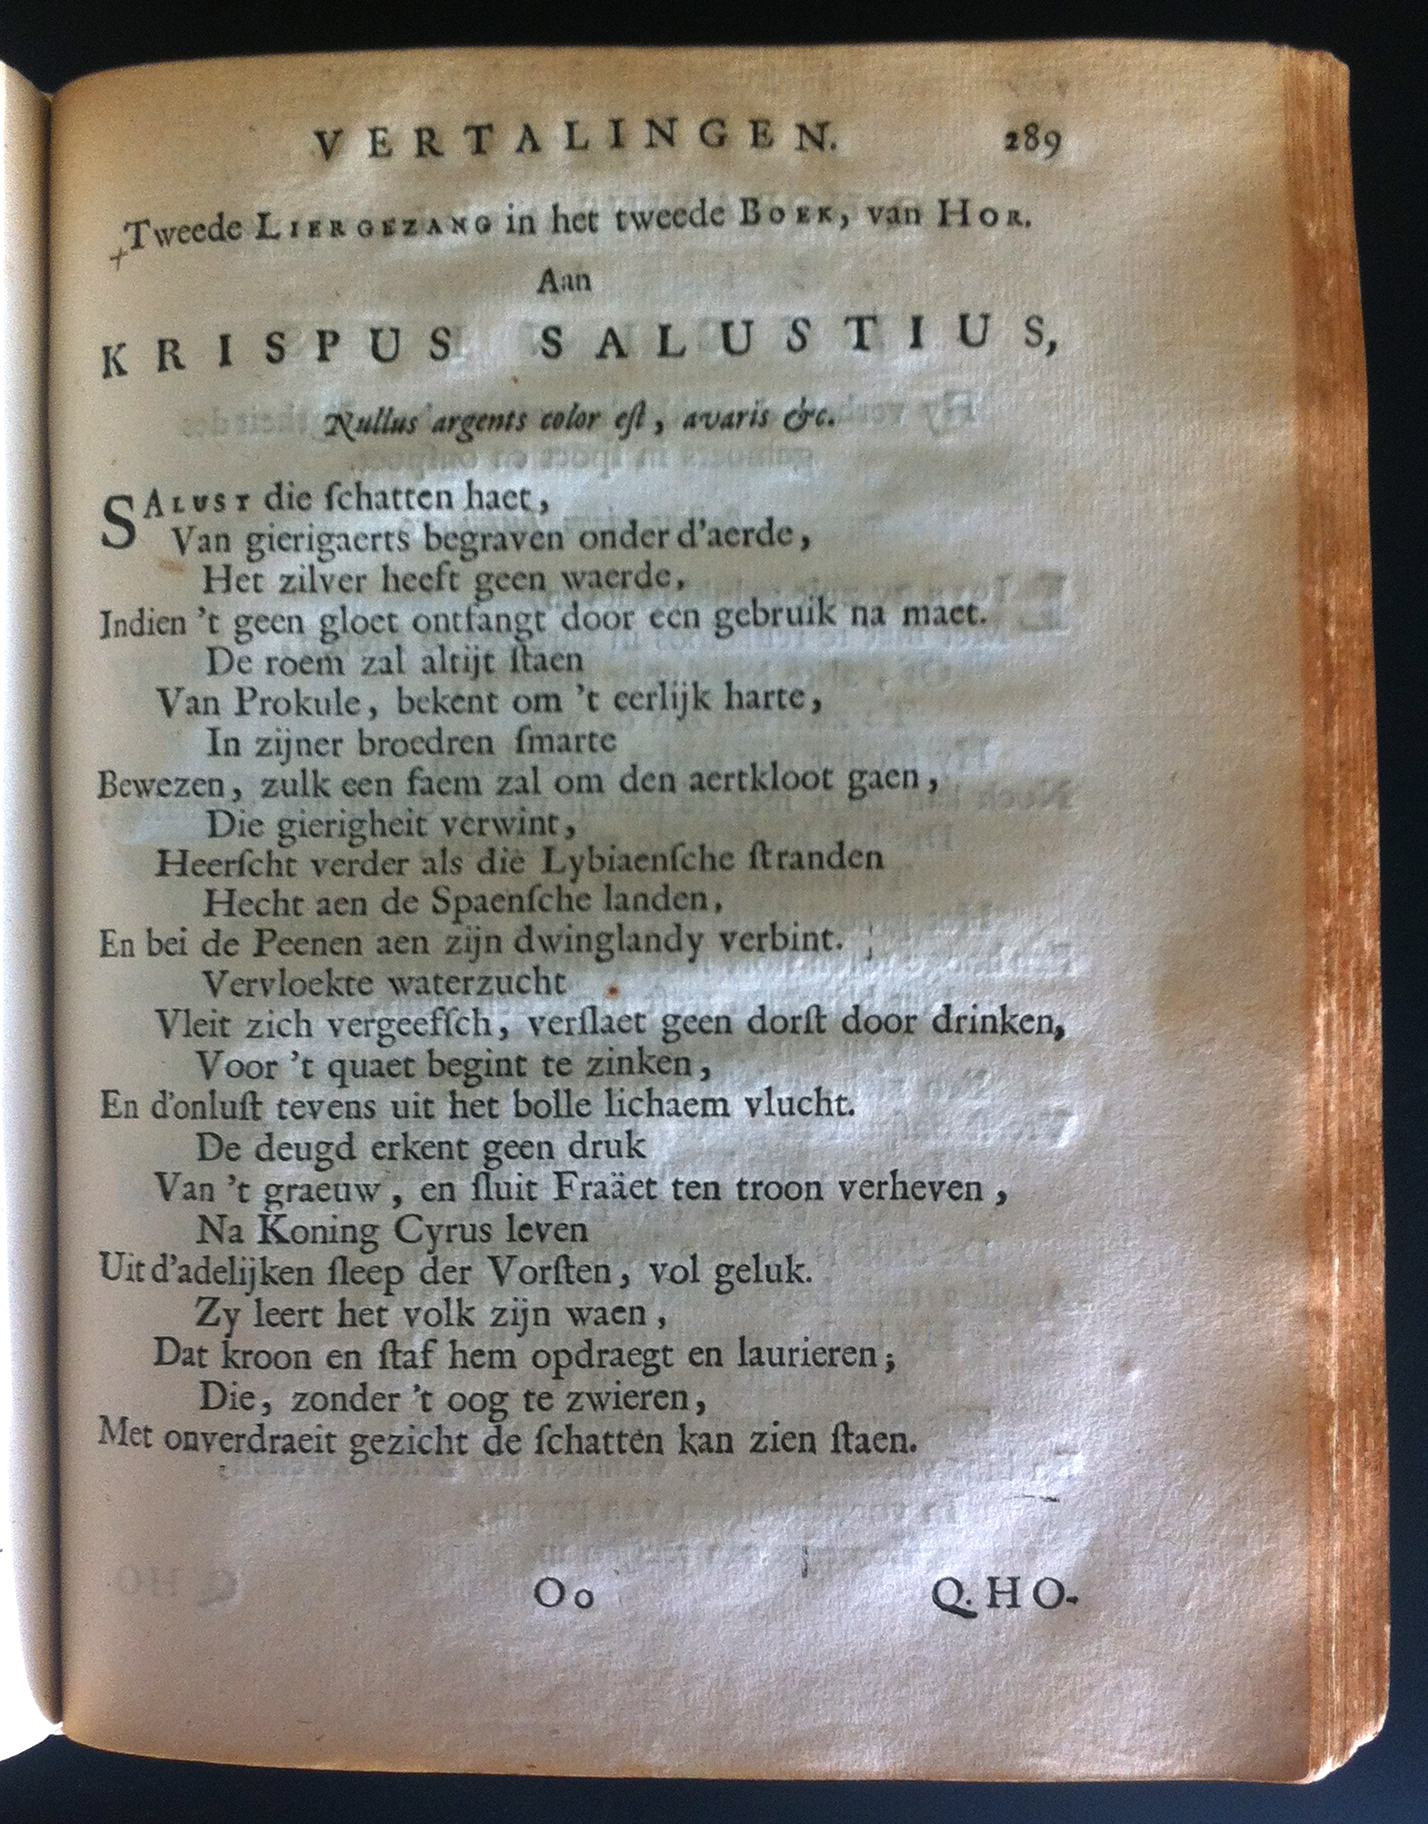 VERTALINGEN. 289
Tweede LIERGEZANG in het tweede BOEK, van HOR.
Aan
KRISPUS SALUSTIUS,
Nullus argents color eſt, avaris &c.
SALUST die ſchatten haet,
Van gierigaerts begraven onder d'aerde,
Het zilver heeft geen waerde,
Indien 't geen gloet ontfangt door een gebruik na maet.
De roem zal altijt ſtaen
Van Prokule, bekent om 't eerlijk harte,
In zijner broedren ſmarte
Bewezen, zulk een faem zal om den aertkloot gaen,
Die gierigheit verwint,
Heerſcht verder als die Lybiaenſche ſtranden
Hecht aen de Spaenſche landen,
En bei de Peenen aen zijn dwinglandy verbint.
Vervloekte waterzucht
Vleit zich vergeefſch, verſlaet geen dorſt door drinken,
Voor 't quaet begint te zinken,
En d'onluſt tevens uit het bolle lichaem vlucht.
De deugd erkent geen druk
Van 't graeuw, en ſluit Fraäet ten troon verheven,
Na Koning Cyrus leven
Uit d'adelijken ſleep der Vorſten, vol geluk.
Zy leert het volk zijn waen,
Dat kroon en ſtaf hem opdraegt en laurieren;
Die, zonder 't oog te zwieren,
Met onverdraeit gezicht de ſchatten kan zien ſtaen.
Oo Q. HO-